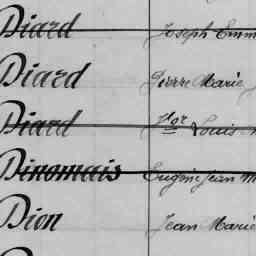 Diard Joseph Emm
Diard Pierre Marie J
Diard Vor Louis
Dinomais Eugène Jean M
Dion Jean Marie